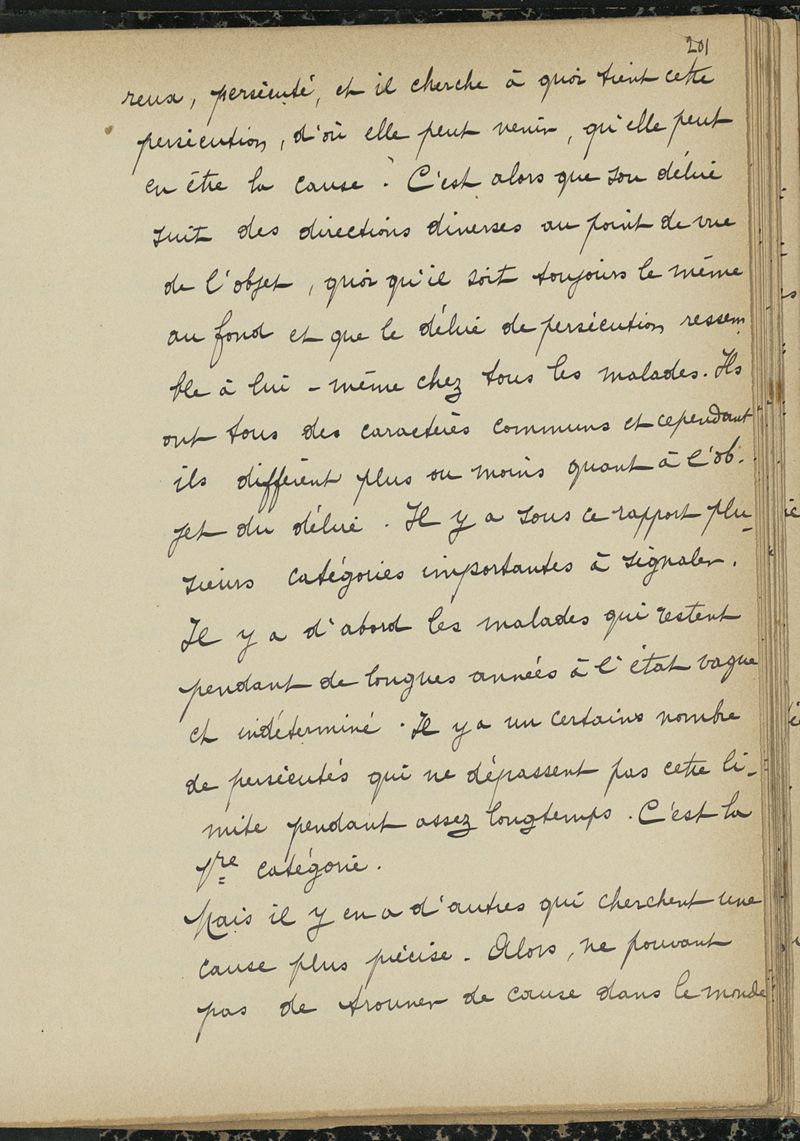 201
reux, persécuté, et il cherche à quoi tient cette
persécution, d'où elle peut venir, qu'elle peut
en être la cause ? C'est alors que son délire
suit des directions diverses au point de vue
de l'objet, quoi qu'il soit toujours le même
au fond et que le délire de persécution ressem
ble à lui-même chez tous les malades. Ils
ont tous des caractères communs et cependant
ils diffèrent plus ou moins quant à l'ob-
jet du délire. Il y a sous ce rapport plu-
sieurs catégories importantes à signaler.
Il y a d'abord les malades qui restent
pendant de longues années à l'état vague
et indéterminé. Il y a un certains nombre
de persécutés qui ne dépassent pas cette li-
mite pendant assez longtemps. C'est la
1re catégorie.
Mais il y en a d'autres qui cherchent une
cause plus précise. Alors, ne pouvant
pas de trouver de cause dans le monde